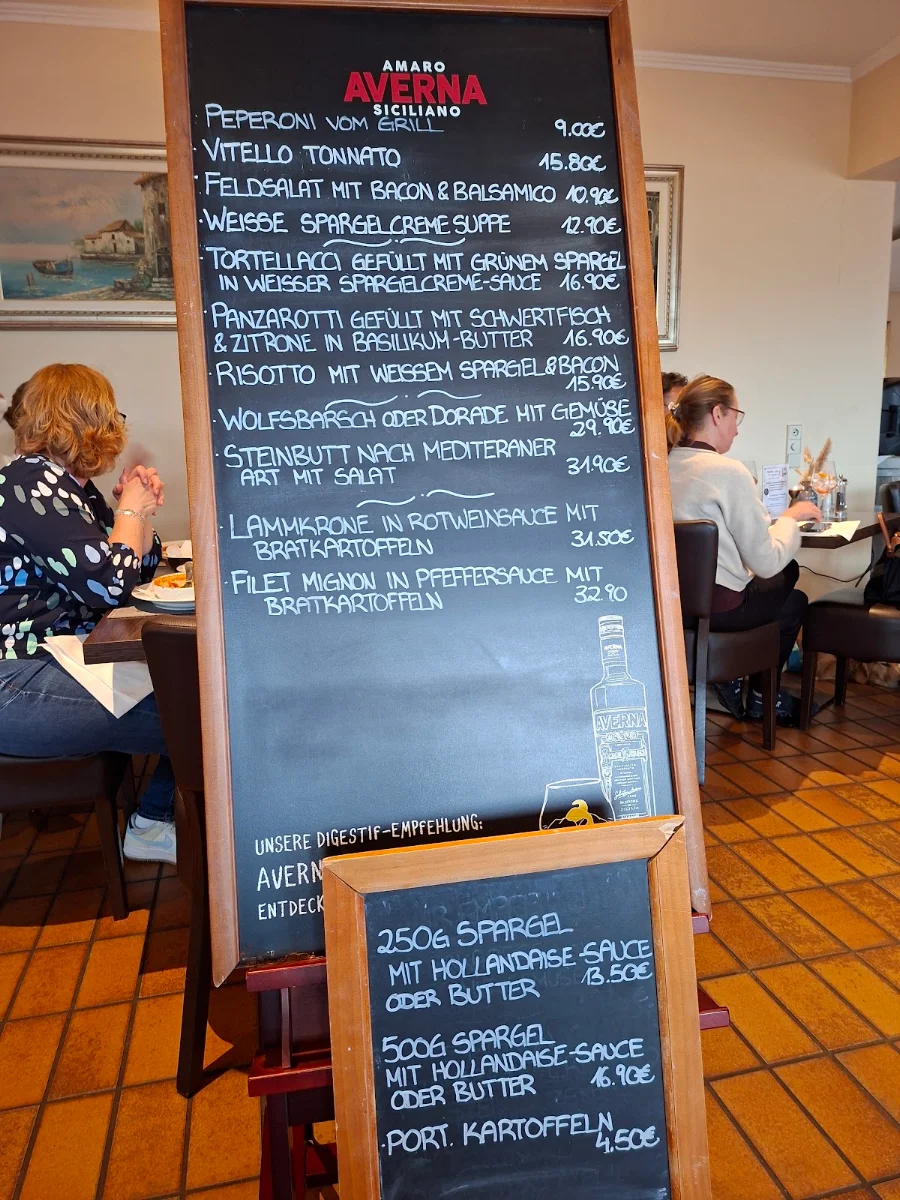 AMARO
AVERNA
SICILIANO
PEPERONI VOM GRILL 9.00€
· VITELLO TONNATO 15.80€
· FELDSALAT MIT BACON & BALSAMICO 10.90€
· WEISSE SPARGELCREMESUPPE 12.90€
· TORTELLACCI GEFÜLLT MIT GRÜNEM SPARGEL
IN WEISSER SPARGELCREME-SAUCE 16.90€
· PANZAROTTI GEFÜLLT MIT SCHWERTFISCH
& ZITRONE IN BASILIKUM-BUTTER 16.90€
· RISOTTO MIT WEISSEM SPARGEL & BACON
15.90€
· WOLFSBARSCH ODER DORADE MIT GEMÜSE
29.90€
· STEINBUTT NACH MEDITERANER
ART MIT SALAT 31.90€
· LAMMKRONE IN ROTWEINSAUCE MIT
BRATKARTOFFELN 31.50€
· FILET MIGNON IN PFEFFERSAUCE MIT
BRATKARTOFFELN 32.90
AVERNA
UNSERE DIGESTIF-EMPFEHLUNG:
AVERN
ENTDECK
250G SPARGEL
MIT HOLLANDAISE-SAUCE
ODER BUTTER 13.50€
500G SPARGEL
MIT HOLLANDAISE-SAUCE
ODER BUTTER 16.90€
· PORT. KARTOFFELN
4,50€